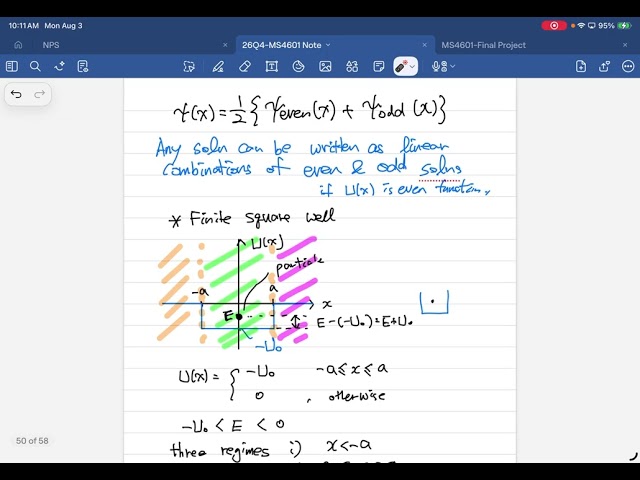 10:11AM Mon Aug 3
95%
NPS
26Q4-MS4601 Note
MS4601-Final Project
ψ(x) = 1/2 { ψeven(x) + ψodd(x) }
Any soln can be written as linear
combinations of even & odd solns
if U(x) is even function.
* Finite square well
U(x)
particle
-a
a
x
E
E-(-U₀)=E+U₀
-U₀
U(x) = { -U₀ -a≤x≤a
0 , otherwise
-U₀ < E < 0
three regimes i) x<-a
50 of 58